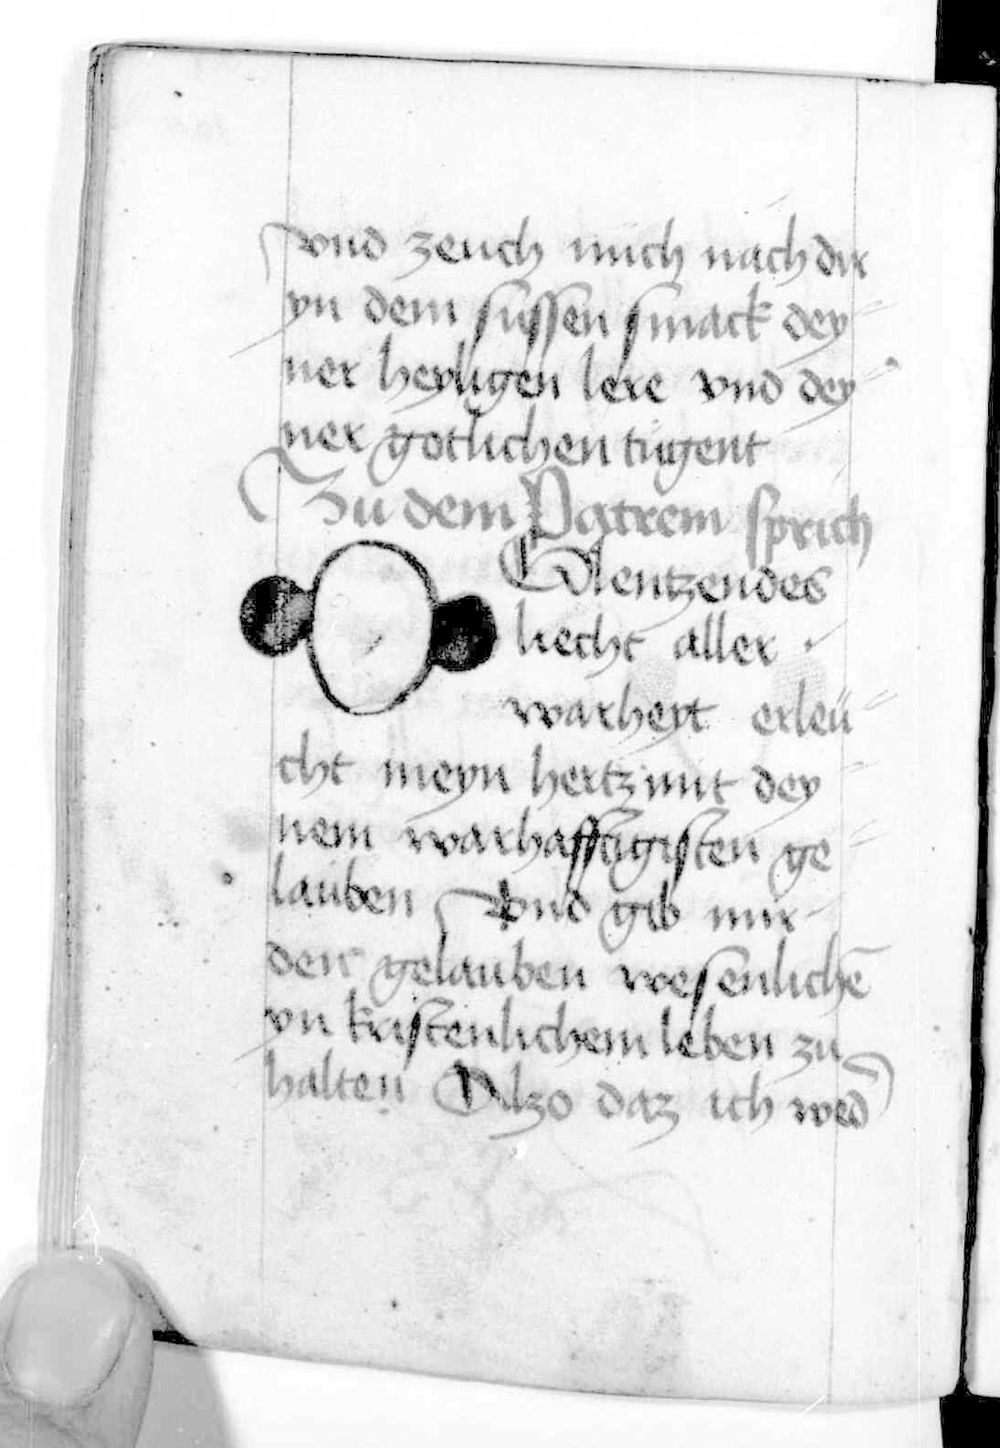 vnd zeuch mich nach dir
yn dem sussen smack dey
ner heyligen lere vnd dey
ner gotlichen tugent
Zu dem Patrem sprich
O Glentzendes
liecht aller
warheyt erleu
cht meyn hertz mit dey
nem warhafftigisten ge
lauben Vnd gib mir
den gelauben wesenlichē
yn kristenlichem leben zu
halten Alzo daz ich wed